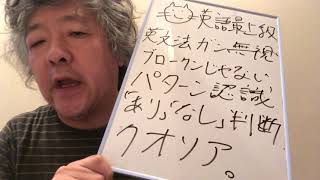 英語最上級
英文法ガン無視
ブロークンじゃない
パターン認識
「あり」「なし」判断
クオリア。